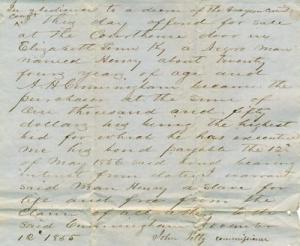 In obedience to a decree of the Grayson Circuit
Court I this day offered for sale
at the Courthouse door in
Elizabeth Town Ky, a Negro man
named Henry about twenty
four years of age and
A H Cunningham became the
purchaser at the sum of
One thousand and fifty
dollars his being the highest
bid for which he has executed
me his bond payable the 12th
of May 1856 said bond bearing
interest from date I warrant
said Man Henry a slave for
life and free from the
claim of all others to
said Cunningham November
12th 1855 John commissioner